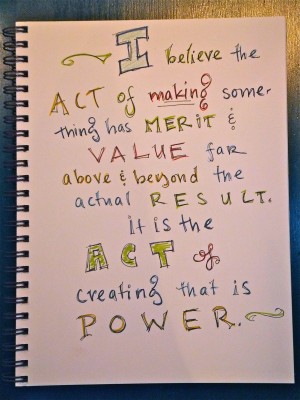 I believe the
ACT of making some-
thing has MERIT &
VALUE far
above & beyond the
actual RESULT.
it is the
ACT of
creating that is
POWER.